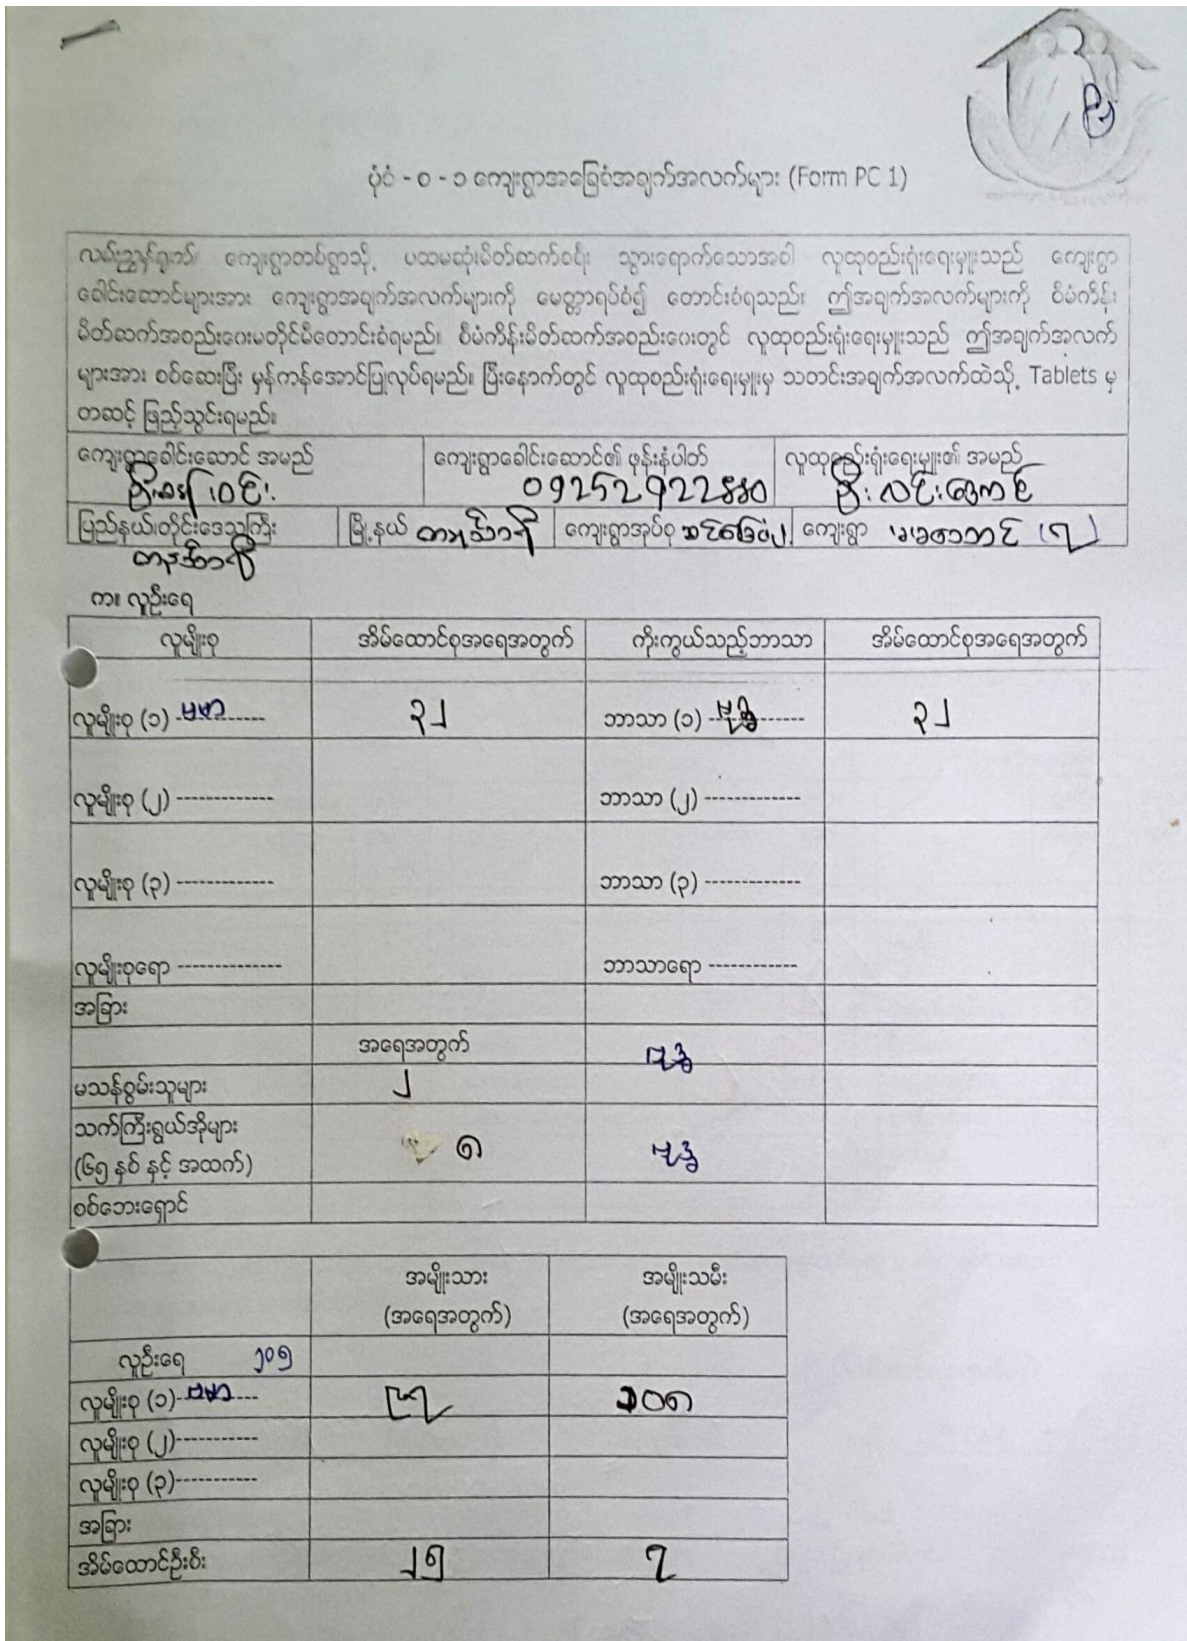 ပုံစံ - စ - ၁ ကျေးရွာအခြေခံအချက်အလက်များ (Form PC 1)
လမ်းညွှန်ချက်၊ ကျေးရွာတစ်ရွာသို့ ပထမဆုံးမိတ်ဆက်ခရီး သွားရောက်သောအခါ လူထုစည်းရုံးရေးမှူးသည် ကျေးရွာ
ခေါင်းဆောင်များအား ကျေးရွာအချက်အလက်များကို မေတ္တာရပ်ခံ၍ တောင်းခံရသည်။ ဤအချက်အလက်များကို စီမံကိန်း
မိတ်ဆက်အစည်းဝေးမတိုင်မီတောင်းခံရမည်။ စီမံကိန်းမိတ်ဆက်အစည်းဝေးတွင် လူထုစည်းရုံးရေးမှူးသည် ဤအချက်အလက်
များအား စစ်ဆေးပြီး မှန်ကန်အောင်ပြုလုပ်ရမည်။ ပြီးနောက်တွင် လူထုစည်းရုံးရေးမှူးမှ သတင်းအချက်အလက်ထဲသို့ Tablets မှ
တဆင့် ဖြည့်သွင်းရမည်။
ကျေးရွာခေါင်းဆောင် အမည် ကျေးရွာခေါင်းဆောင်၏ ဖုန်းနံပါတ် လူထုစည်းရုံးရေးမှူး၏ အမည်
ပြည်နယ်/တိုင်းဒေသကြီး မြို့နယ် တနင်္သာရီ ကျေးရွာအုပ်စု ကျေးရွာ (၇)
တနင်္သာရီ
က။ လူဦးရေ
လူမျိုးစု အိမ်ထောင်စုအရေအတွက် ကိုးကွယ်သည့်ဘာသာ အိမ်ထောင်စုအရေအတွက်
လူမျိုးစု (၁) ဗမာ ၃၂ ဘာသာ (၁) ဗုဒ္ဓ ၃၂
လူမျိုးစု (၂) ------------- ဘာသာ (၂) -------------
လူမျိုးစု (၃) ------------- ဘာသာ (၃) -------------
လူမျိုးစုရော -------------- ဘာသာရော ------------
အခြား
အရေအတွက် ဗုဒ္ဓ
မသန်စွမ်းသူများ ၂
သက်ကြီးရွယ်အိုများ
(၆၅ နှစ် နှင့် အထက်) ၈ ဗုဒ္ဓ
စစ်ဘေးရှောင်
အမျိုးသား အမျိုးသမီး
(အရေအတွက်) (အရေအတွက်)
လူဦးရေ ၂၀၅
လူမျိုးစု (၁) ဗမာ ၉၇ ၁၀၈
လူမျိုးစု (၂)-----------
လူမျိုးစု (၃)-----------
အခြား
အိမ်ထောင်ဦးစီး ၂၅ ၇